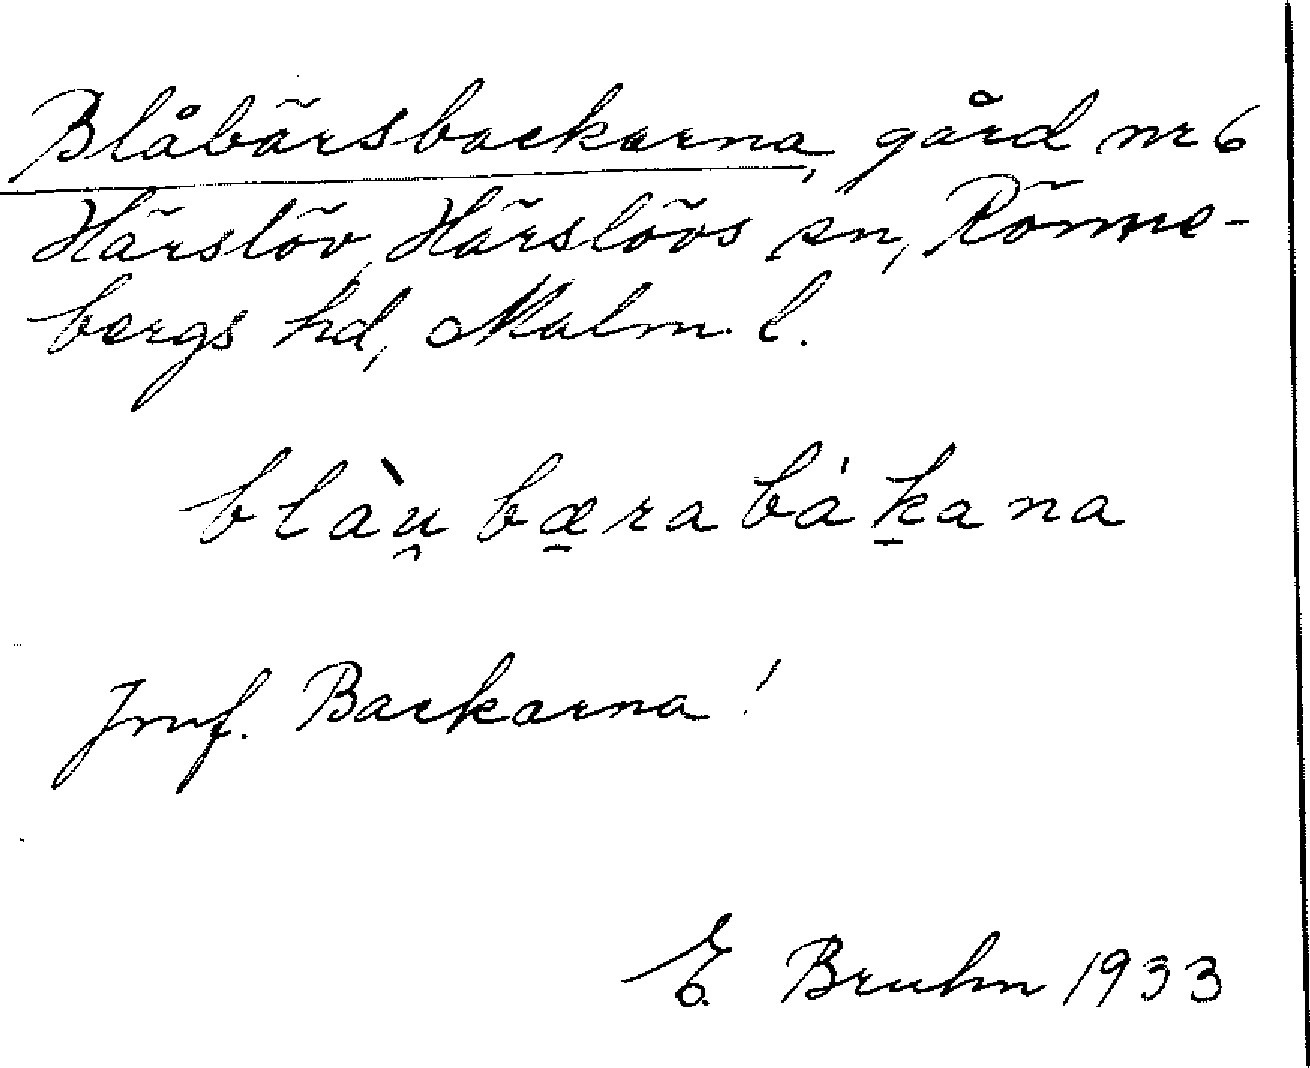 Blåbärsbackarna, gård nr 6
Härslöv, Härslövs sn, Rönne-
bergs hd, Malm. l.
blàu̯ bæ̱ra bá ḵa na
Jmf. Backarna!
E. Bruhn 1933